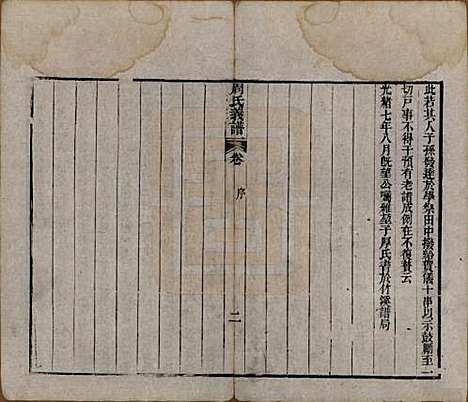 此若其人子孫發達於學祭田中撥給賀儀十串以示鼓勵至一
切戶事不得干預有老譜成例在不復贅云
光緒七年八月旣望公囑雅堂子厚氏書於竹溪譜局
周氏義譜
卷
序
二